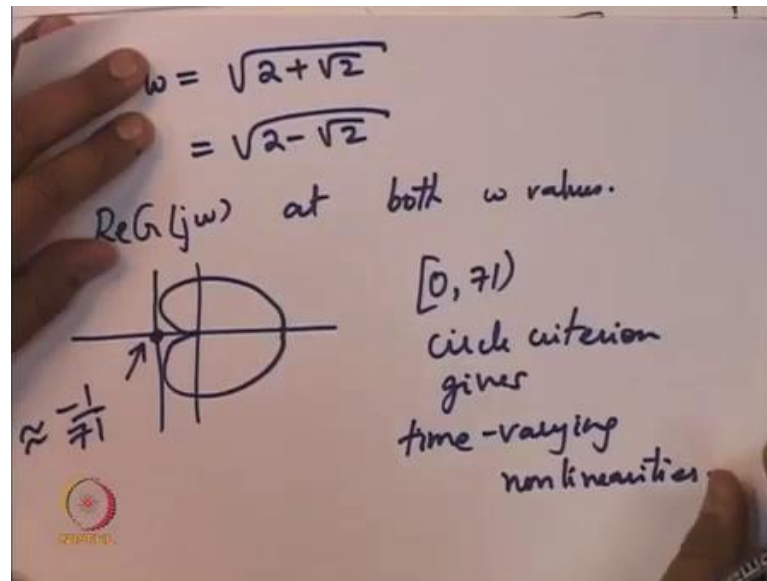 ω = √(2+√2)
= √(2-√2)
ReG(jω) at both ω values.
[0, 71)
circle criterion
gives
≈ -1/71
time-varying
nonlinearities.
NPTEL